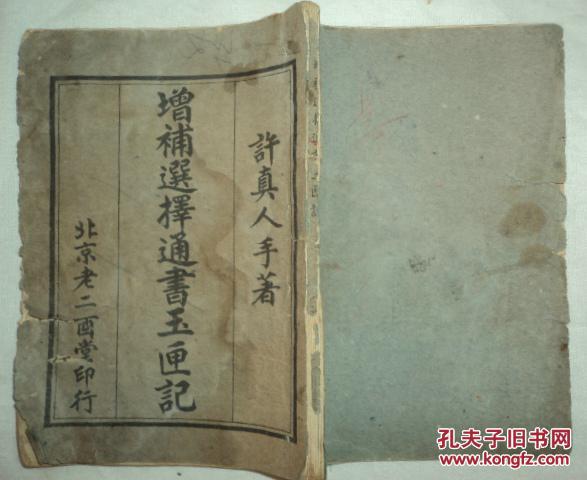 許真人手著
增補選擇通書玉匣記
北京老二酉堂印行
孔夫子旧书网
www.kongfz.com